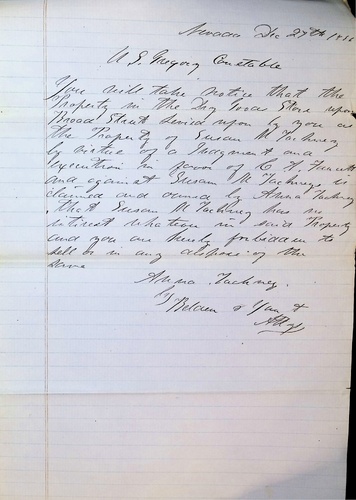 Nevada Dec 29th
U S Gregory Constable
You will take notice that the
Property in the Dry Goods Store upon
Broad Street levied upon by you as
the Property of Susan M Tackney
by virtue of a Judgment and
Execution in favor of C H
and against Susan M Tackney is
claimed and owned by Anna Tackney
that Susan M Tackney has no
interest whatever in said Property
and you are hereby forbidden to
sell or in any dispose of the
same
Anna Tackney
Belden &
Attys